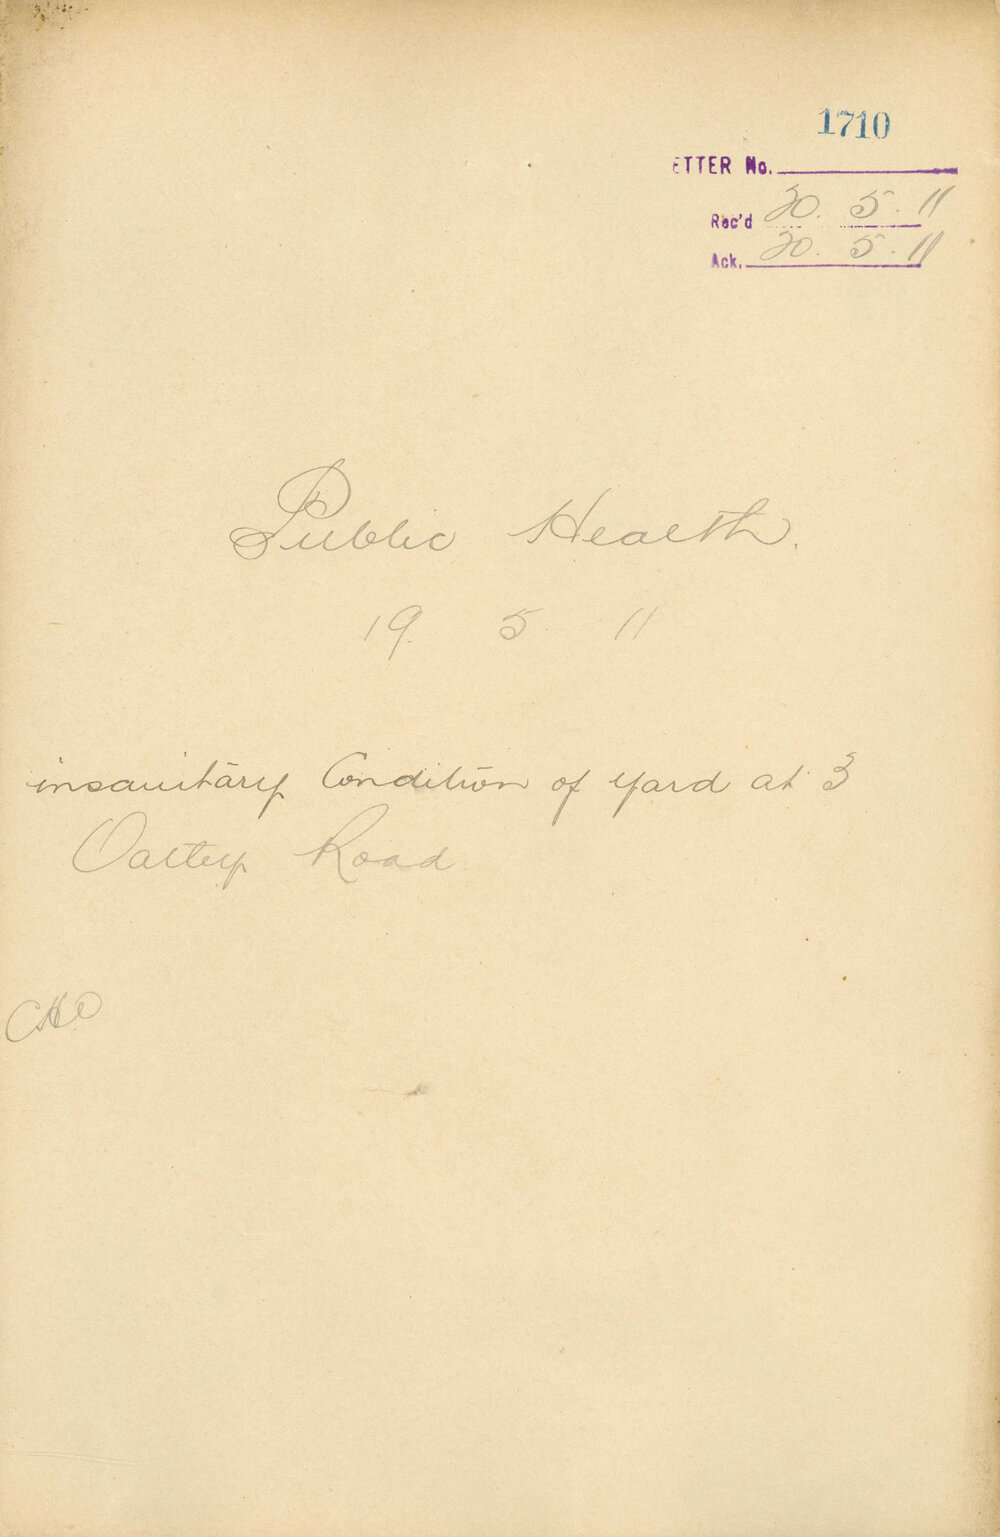 1710
ETTER No.
Rec'd 20. 5. 11
Ack. 20. 5. 11
Public Health.
19. 5. 11
insanitary Condition of yard at 3
Oatley Road
CHO